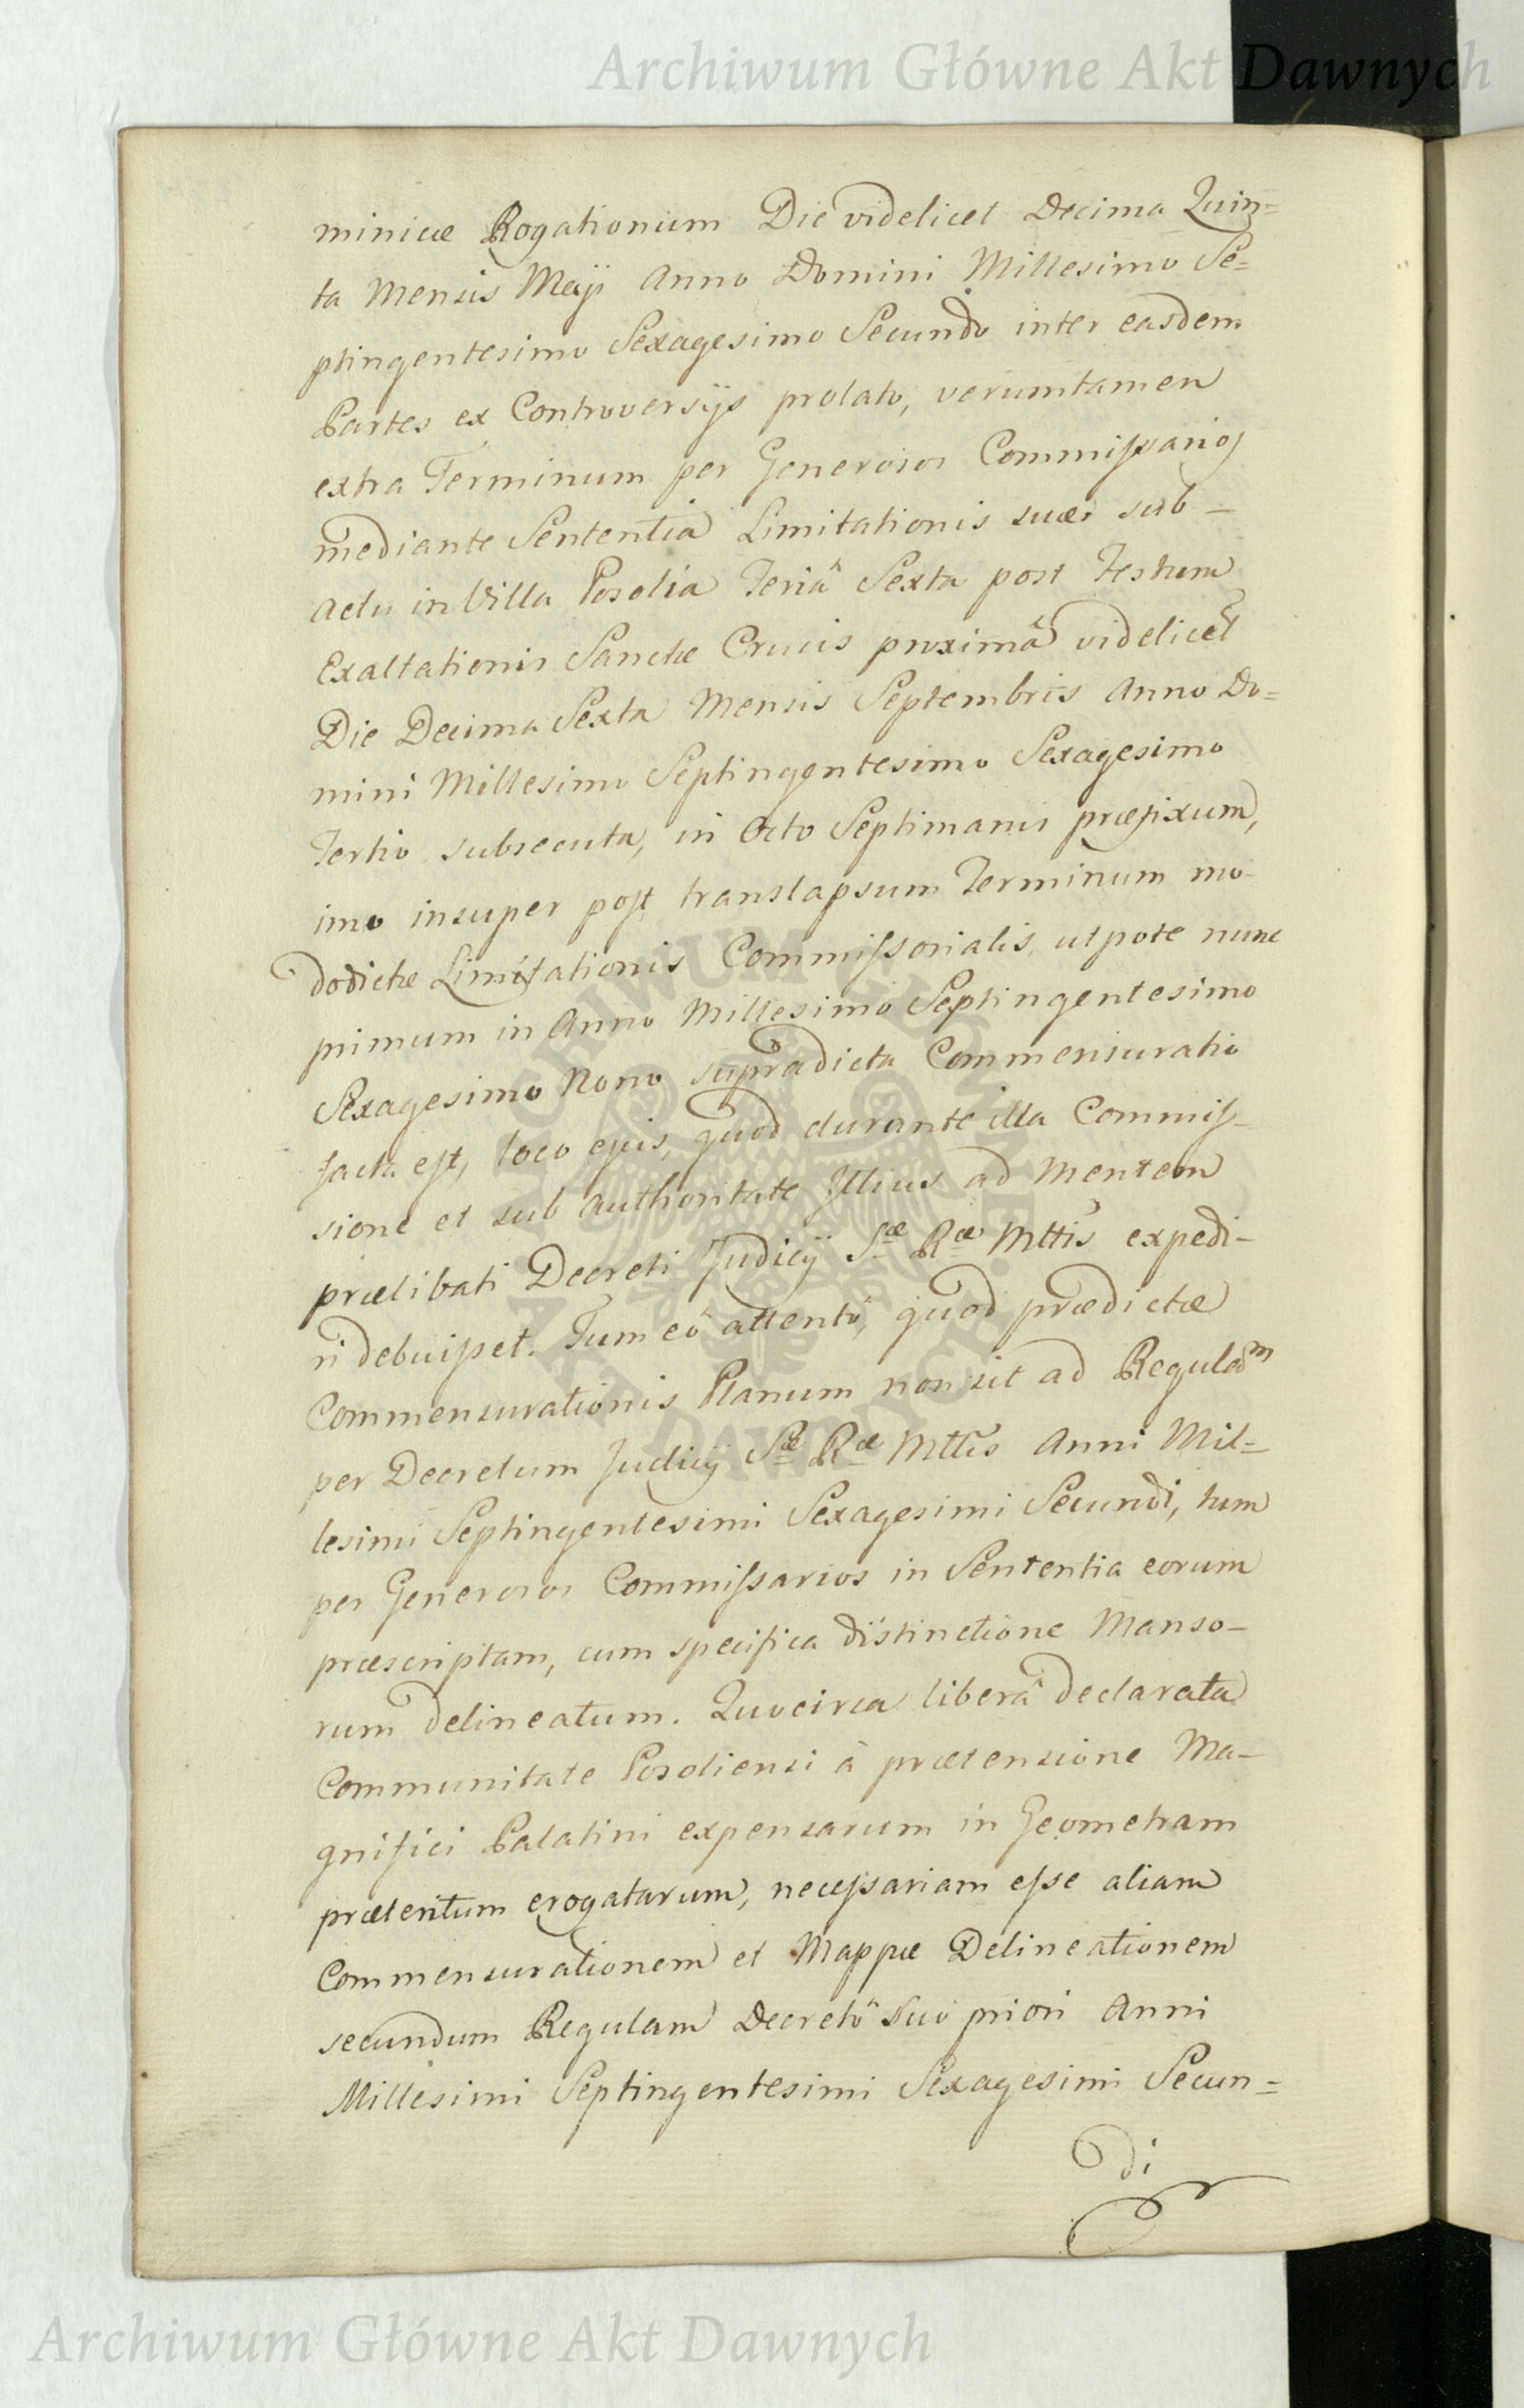 Archiwum Główne Akt Dawnych
minicæ Rogationum Die videlicet Decima Quin=
ta Mensis Maji Anno Domini Millesimo Se=
ptingentesimo Sexagesimo Secundo inter easdem
Partes ex Controversijs prolato, verumtamen
extra Terminum per Generosos Commissarios
mediante Sententia Limitationis suæ, sub-
actu in Villa Posolia Feriâ Sexta post Festum
Exaltationis Sanctæ Crucis proximâ videlicet
Die Decima Sexta Mensis Septembris Anno Do=
mini Millesimo Septingentesimo Sexagesimo
Tertio subsecuta, in Octo Septimanis præfixum,
imo insuper post translapsum Terminum mo-
dodictæ Limitationis Commissorialis, utpote nunc
primum in Anno Millesimo Septingentesimo
Sexagesimo Nono supradicta Commensuratio
facta est, loco ejus, quod durante illa Commis-
sione et sub Authoritate Illius ad mentem
prælibati Decreti Judicij Sæ Ræ Mttis expedi-
ri debuisset. Tum eô attentô, quod prædictæ
Commensurationis Planum non sit ad Regulam
per Decretum Judicij Sæ Ræ Mttis Anni Mil=
lesimi Septingentesimi Sexagesimi Secundi, tum
per Generosos Commissarios in Sententia eorum
præscriptam, cum specifica distinctione Manso-
rum delineatum. Quocirca liberâ declarata
Communitate Posoliensi â prætensione Ma-
gnifici Palatini expensarum in Geometram
præteritum erogatarum, necessariam esse aliam
Commensurationem et Mappæ Delineationem
secundum Regulam Decretô Suô priori Anni
Millesimi Septingentesimi Sexagesimi Secun=
di
ARCHIWUM GŁÓWNE AKT DAWNYCH
Archiwum Główne Akt Dawnych